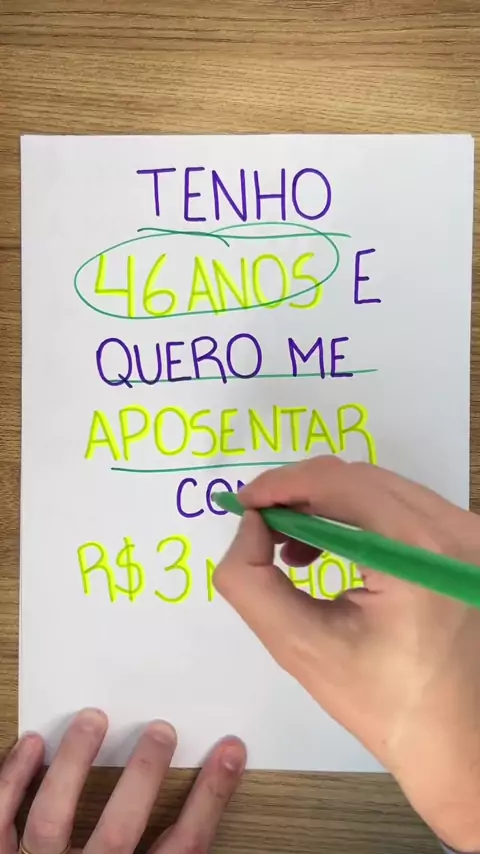 TENHO
46 ANOS E
QUERO ME
APOSENTAR
R$3